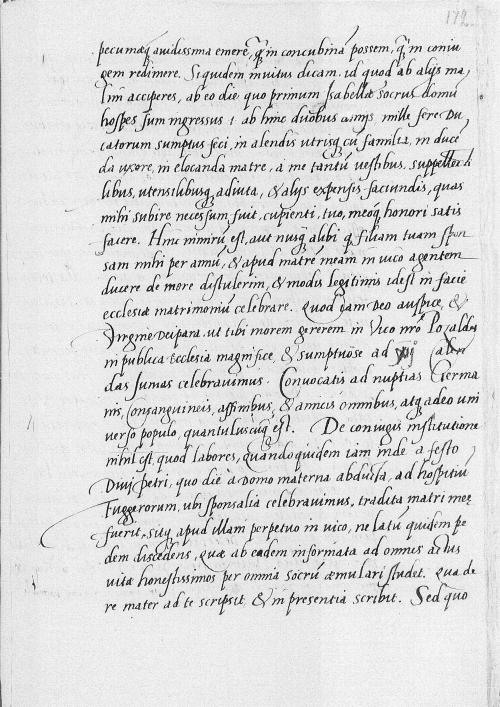 172
pecuniaq̃ auidissima emere, q̃ in concubinã possem, q̃ in coniu
gem redimere. Siquidem inuitus dicam, id quod ab alijs ma
lim acciperes, ab eo die quo primum Isabellæ socrus domũ
hospes sum ingressus, ab hinc duobus annis mille fere Du
catorum sumptus feci, in alendis utrisq; cũ familia, in ducẽ
da uxore, in elocanda matre, a me tantũ uestibus, suppellecti
libus, utensilibusq; adiuta, & alijs expensis faciundis, quas
mihi subire necessum fuit, cupienti, tuo, meoq; honori satis
facere. Hinc nimirũ est, aut nusq̃ alibi q̃ filiam tuam spon
sam mihi per annũ, & apud matrẽ meam in uico agentem
ducere de more distulerim, & modis legitimis idest in facie
ecclesiæ matrimoniũ celebrare. Quod iam Deo auspice, &
Virgine Deipara, ut tibi morem gererem in Vico mro Po
in publica Ecclesia magnifice, & sumptuose ad xiij Calen
das Junias celebrauimus. Conuocatis ad nuptias Germa
nis, consanguineis, affinibus, & amicis omnibus, atq; adeo uni
uerso populo, quantuluscuq; est. De coniugis institutione
nihil est, quod labores, quandoquidem iam inde a festo
Diui Petri, quo die a Domo materna abducta, ad hospitiũ
Fuggerorum, ubi sponsalia celebrauimus, tradita matri meæ
fuerit, sitq; apud illam perpetuo in uico, ne latũ quidem pe
dem discedens, quæ ab eadem informata ad omnis actus
uitæ honestissimos per omnia socrũ æmulari studet. Qua de
re mater ad te scripsit, & in presentia scribit. Sed quo